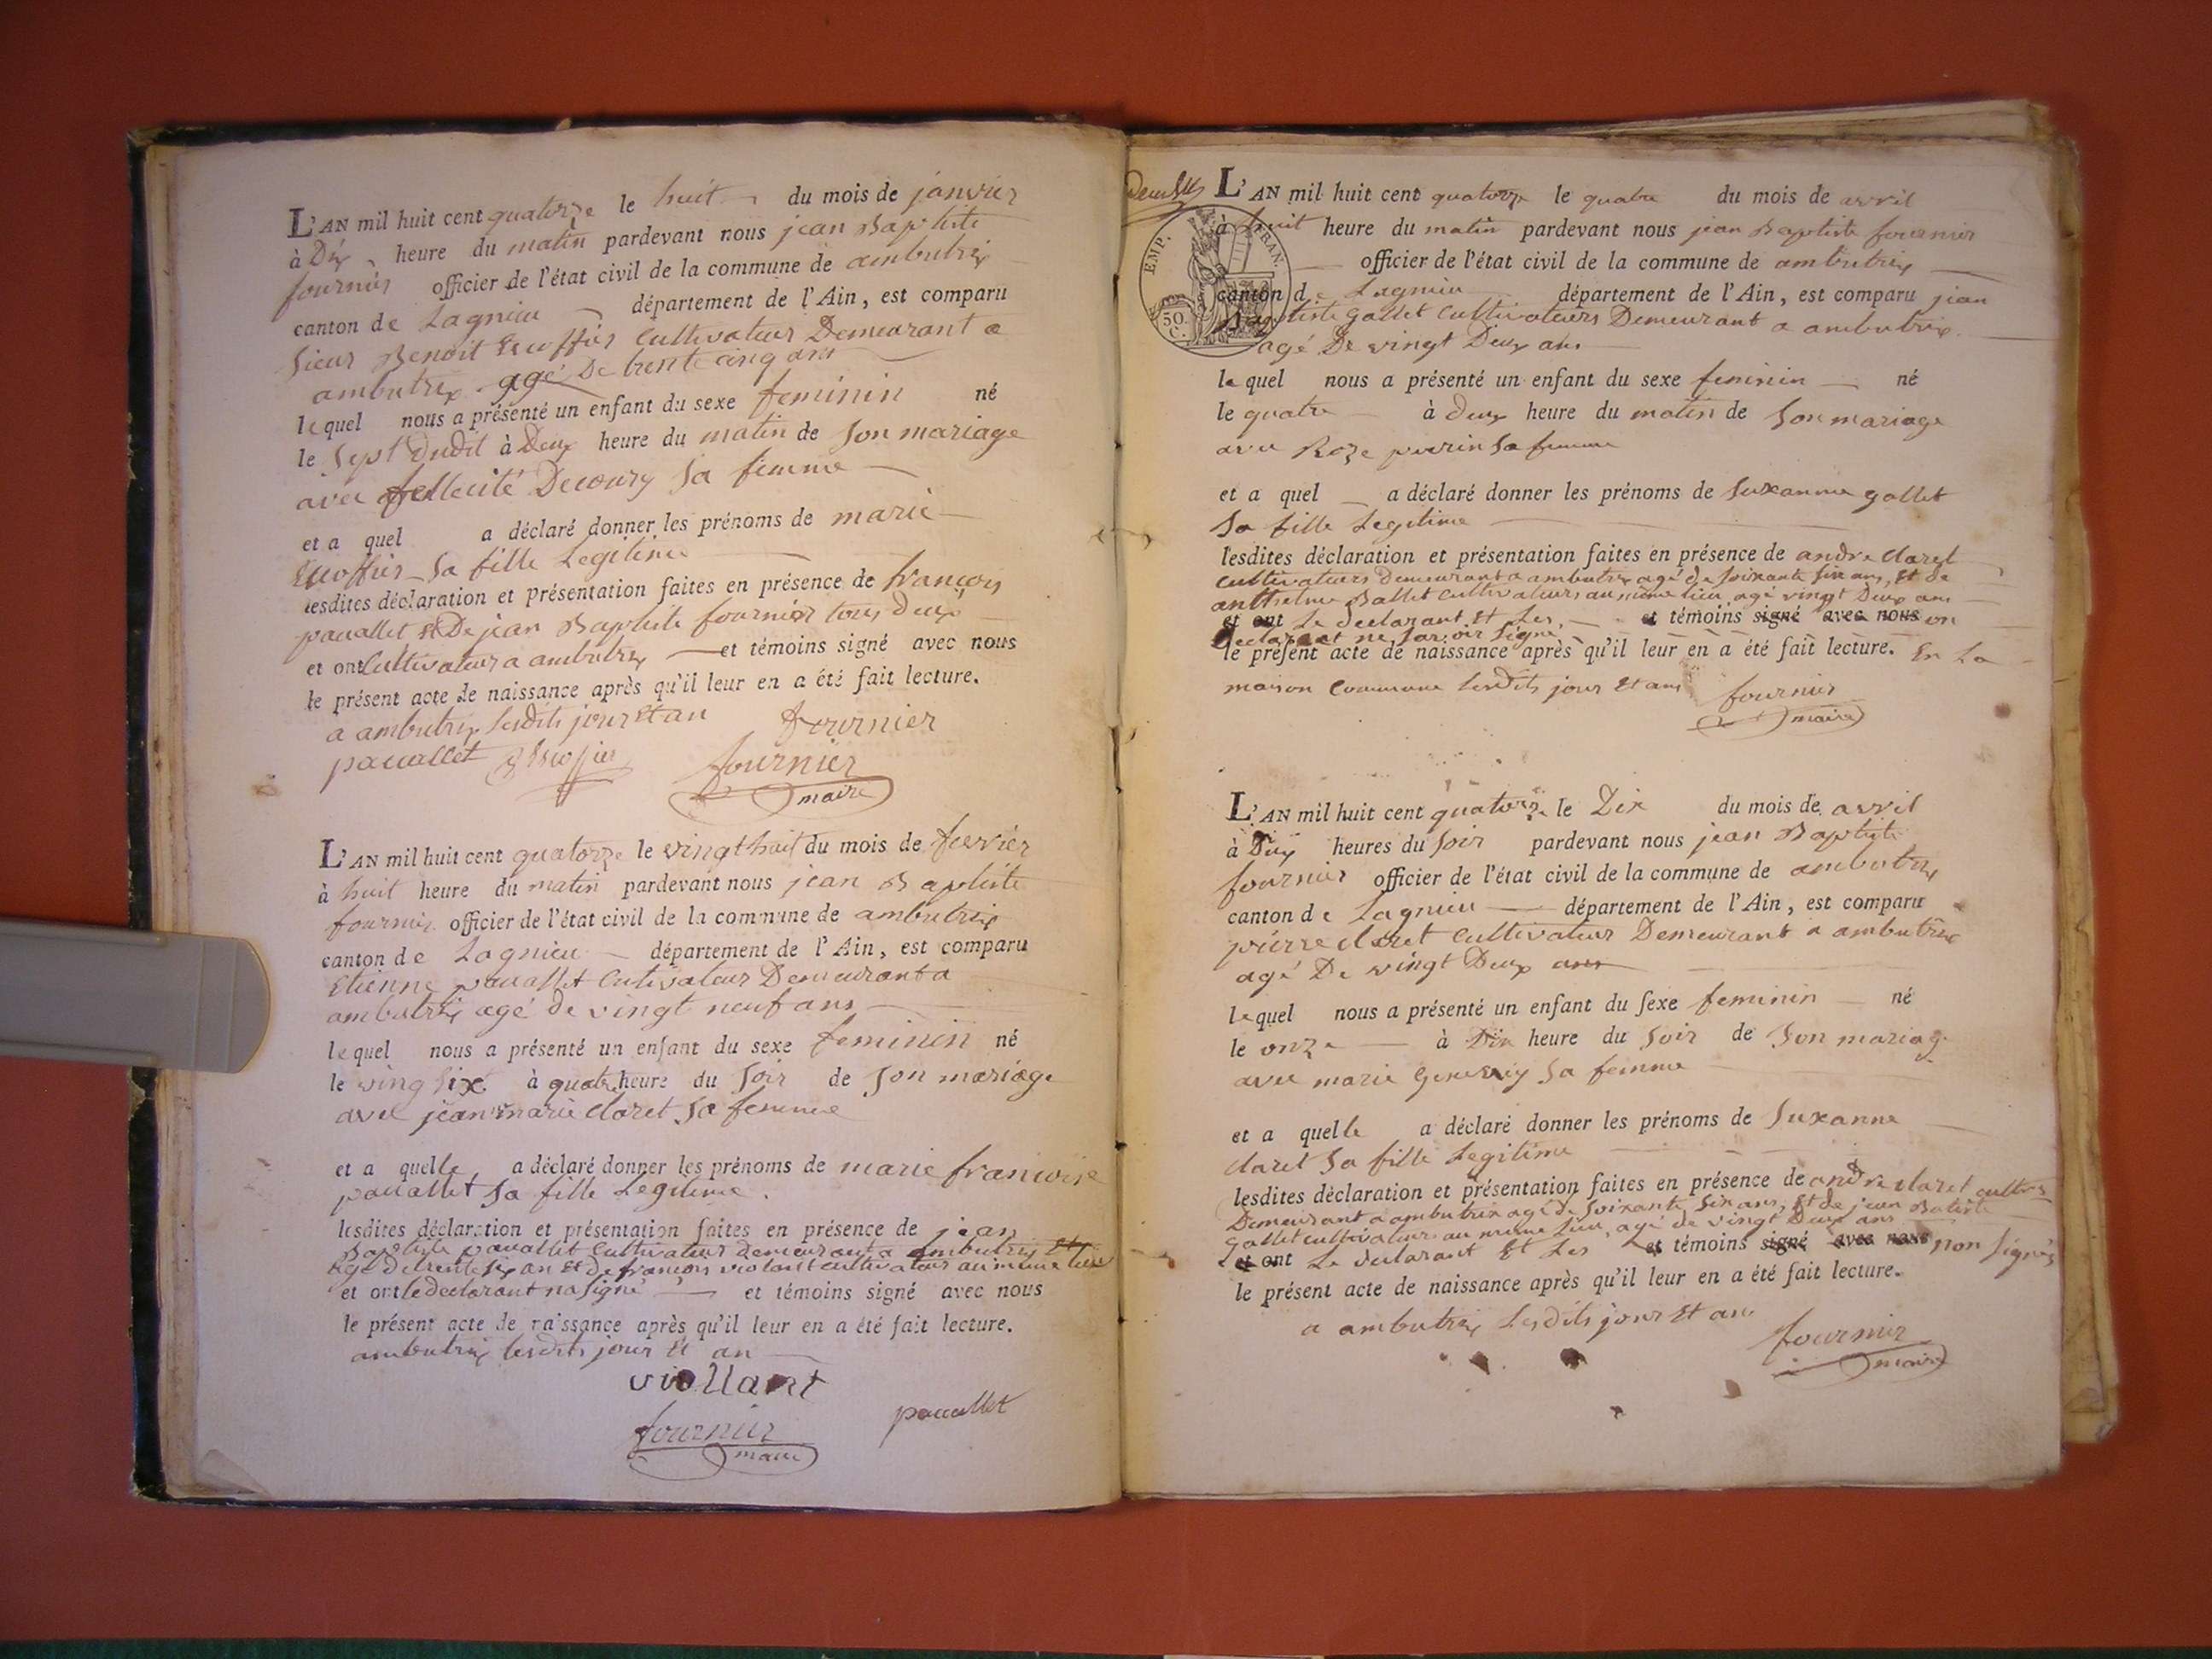 L'AN mil huit cent quatorze le huit du mois de janvier
à Dix heure du matin pardevant nous jean Baptiste
fournier officier de l'état civil de la commune de ambutrix
canton de Lagnieu département de l'Ain, est comparu
Sieur Benoit Escoffier Cultivateur Demeurant a
ambutrix agé De trente cinq ans
lequel nous a présenté un enfant du sexe feminin né
le Sept Dudit à Deux heure du matin de Son mariage
avec fellecité Decoury Sa femme
et a quel a déclaré donner les prénoms de marie
Escoffier Sa fille Legitime
lesdites déclaration et présentation faites en présence de françois
pauallet et De jean Baptiste fournier tous deux
et ont Cultivateur a ambutrix et témoins signé avec nous
le présent acte de naissance après qu'il leur en a été fait lecture.
a ambutrix Lesdits jour Et an fournier
pauallet Escoffier fournier
maire
L'AN mil huit cent quatorze le vingt huit du mois de fevrier
à huit heure du matin pardevant nous jean Baptiste
fournier officier de l'état civil de la commune de ambutrix
canton de Lagnieu département de l'Ain, est comparu
Etienne pauallet Cutivateur Demeurant a
ambutrix agé de vingt neuf ans
lequel nous a présenté un enfant du sexe feminin né
le ving six à quatre heure du Soir de Son mariage
avec jean marie Claret Sa femme
et a quelle a déclaré donner les prénoms de marie francoise
pauallet Sa fille Legitime.
lesdites déclaration et présentation faites en présence de jean
Baptiste pauallet Cultivateur demeurant a ambutrix Et
agé de trente six an Et de francois violant cultivateur au meme lieu
et ont le declarant na Signé et témoins signé avec nous
le présent acte de naissance après qu'il leur en a été fait lecture.
ambutrix lesdits jour Et an
viollant
fournier pauallet
maire
L'AN mil huit cent quatorze le quatre du mois de avril
à huit heure du matin pardevant nous jean Baptiste fournier
officier de l'état civil de la commune de ambutrix
canton de Lagnieu département de l'Ain, est comparu jean
Baptiste gallet Cultivateurs Demeurant a ambutrix
agé De vingt Deux ans
EMP. FRAN.
50 C.
lequel nous a présenté un enfant du sexe feminin né
le quatre à deux heure du matin de Son mariage
avec Roze perrin Sa femme
et a quel a déclaré donner les prénoms de Suxanne gallet
Sa fille Legitime
lesdites déclaration et présentation faites en présence de andre Claret
Cultivateurs demeurant a ambutrix agé de Soixante Six ans, Et de
anthelme Ballet Cultivateurs au meme lieu agé vingt Deux ans
et ont Le declarant Et Les et témoins signé avec nous on
declarent ne Savoir Signe
le présent acte de naissance après qu'il leur en a été fait lecture. En La
maison Commune lesdits jour Et an fournier
maire
L'AN mil huit cent quatorze le Dix du mois de avril
à Dix heures du Soir pardevant nous jean Baptiste
fournier officier de l'état civil de la commune de ambutrix
canton de Lagnieu département de l'Ain, est comparu
pierre claret Cultivateur Demeurant a ambutrix
agé De vingt Deux ans
lequel nous a présenté un enfant du sexe feminin né
le onze à Dix heure du Soir de Son mariage
avec marie Sa femme
et a quelle a déclaré donner les prénoms de Suxanne
claret Sa fille Legitime
lesdites déclaration et présentation faites en présence de andre claret
Demeurant a ambutrix agé de Soixante Six ans, Et de jean Batiste
gallet cultivateurs au meme lieu, agé de vingt Deux ans
et ont Le declarant Et Les et témoins signé avec nous non Signés
le présent acte de naissance après qu'il leur en a été fait lecture.
a ambutrix Lesdits jour Et an
fournier
maire